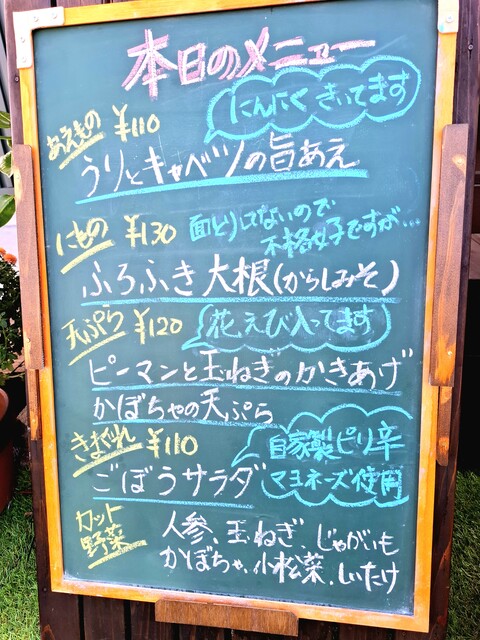 本日のメニュー
あえもの ¥110 にんにくきいてます
うりとキャベツの旨あえ
にもの ¥130 面とりしてないので
不格好ですが…
ふろふき大根(からしみそ)
天ぷら ¥120 花えび入ってます
ピーマンと玉ねぎのかきあげ
かぼちゃの天ぷら
きまぐれ ¥110 自家製ピリ辛
ごぼうサラダ マヨネーズ使用
カット 人参、玉ねぎ、じゃがいも
野菜 かぼちゃ、小松菜、しいたけ